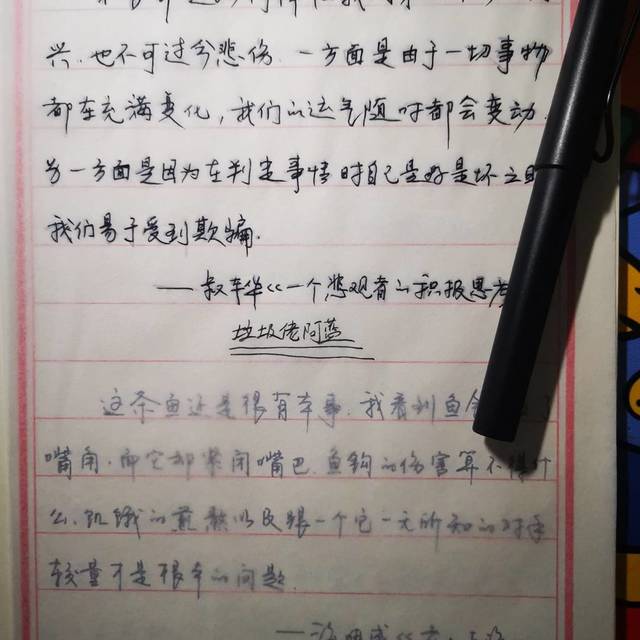 兴,也不可过分悲伤.一方面是由于一切事物
都在充满变化,我们的运气随时都会变动.
另一方面是因为在判定事情时自己是好是坏之时
我们易于受到欺骗.
——叔本华《一个悲观者的积极思考
垃圾佬阿燕
这条鱼还是很有本事.我看到鱼
嘴角.而它却紧闭嘴巴.鱼钩的伤害算不得什
么.饥饿的煎熬以及跟一个它一无所知的对手
较量才是根本的问题.